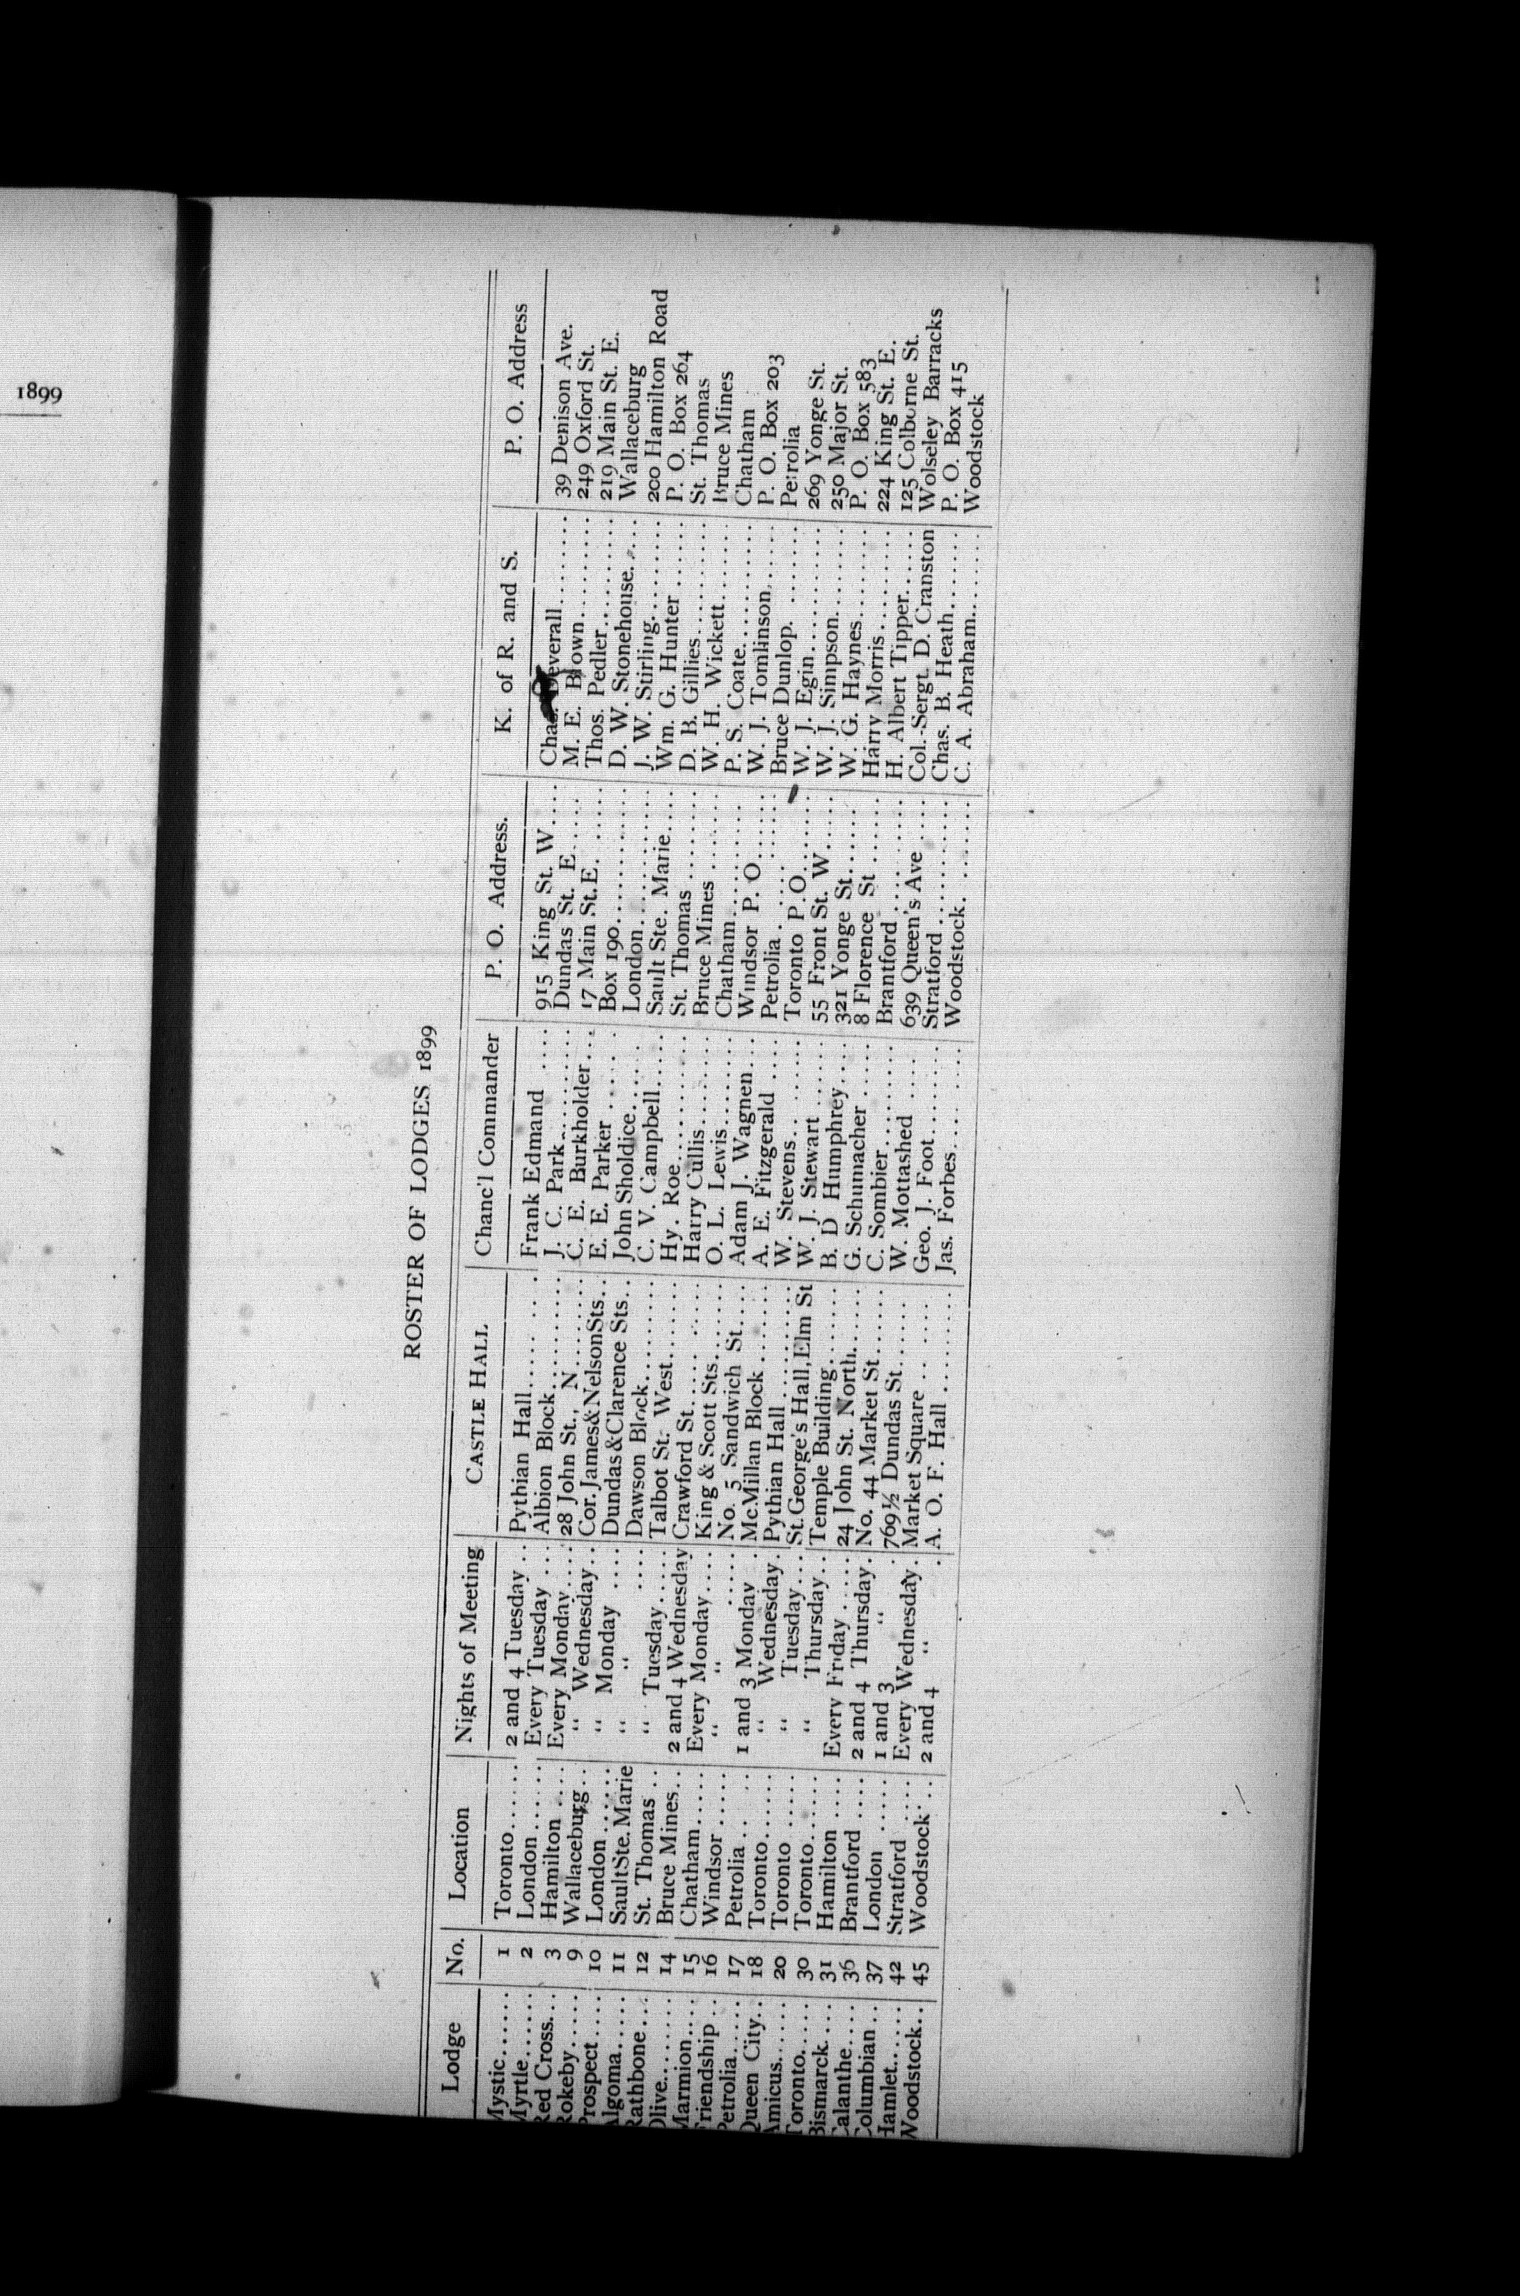 1899
ROSTER OF LODGES 1899
Lodge No. Location Nights of Meeting CASTLE HALL Chanc'l Commander P. O. Address. K. of R. and S. P. O. Address
Mystic...... 1 Toronto...... 2 and 4 Tuesday .. Pythian Hall........ Frank Edmand .... 915 King St. W .... Chas. Deverall........ 39 Denison Ave.
Myrtle...... 2 London ...... Every Tuesday ... Albion Block.......... J. C. Park.......... Dundas St. E..... M. E. Brown......... 249 Oxford St.
Red Cross... 3 Hamilton .... Every Monday.... 28 John St., N........ C. E. Burkholder... 17 Main St.E. ..... Thos. Pedler......... 219 Main St. E.
Rokeby..... 9 Wallaceburg.. " Wednesday.. Cor.James&NelsonSts.. E. E. Parker ..... Box 190............ D. W. Stonehouse..... Wallaceburg
Prospect .... 10 London ...... " Monday .... Dundas&Clarence Sts.. John Sholdice...... London ............ J. W. Stirling......... 200 Hamilton Road
Algoma..... 11 SaultSte.Marie " " .... Dawson Block......... C. V. Campbell..... Sault Ste. Marie.... Wm. G. Hunter ...... P. O. Box 264
Rathbone... 12 St. Thomas .. " Tuesday..... Talbot St. West....... Hy. Roe............ St. Thomas ........ D. B. Gillies.......... St. Thomas
Olive........ 14 Bruce Mines.. 2 and 4 Wednesday Crawford St.......... Harry Cullis........ Bruce Mines ...... W. H. Wickett....... Bruce Mines
Marmion.... 15 Chatham..... Every Monday .... King & Scott Sts....... O. L. Lewis........ Chatham.......... P. S. Coate.......... Chatham
Friendship .. 16 Windsor ..... " " ..... No. 5 Sandwich St.... Adam J. Wagnen... Windsor P. O...... W. J. Tomlinson...... P. O. Box 203
Petrolia..... 17 Petrolia .. .. 1 and 3 Monday .. McMillan Block ...... A. E. Fitzgerald .... Petrolia .......... Bruce Dunlop. ...... Petrolia
Queen City.. 18 Toronto...... " Wednesday. Pythian Hall .......... W. Stevens......... Toronto P.O....... W. J. Egin.......... 269 Yonge St.
Amicus...... 20 Toronto ..... " Tuesday... St.George's Hall,Elm St W. J. Stewart ...... 55 Front St. W..... W. J. Simpson........ 250 Major St.
Toronto..... 30 Toronto...... " Thursday.. Temple Building....... B. D Humphrey.... 321 Yonge St....... W. G. Haynes........ P. O. Box 583
Bismarck.... 31 Hamilton .... Every Friday ..... 24 John St. North..... G. Schumacher ..... 8 Florence St ...... Harry Morris......... 224 King St. E.
Calanthe.... 36 Brantford .... 2 and 4 Thursday . No. 44 Market St...... C. Sombier ......... Brantford ......... H. Albert Tipper...... 125 Colborne St.
Columbian .. 37 London ..... 1 and 3 " . 769½ Dundas St...... W. Mottashed .... 639 Queen's Ave .... Col.-Sergt. D. Cranston Wolseley Barracks
Hamlet...... 42 Stratford .... Every Wednesday . Market Square .. ..... Geo. J. Foot........ Stratford .......... Chas. B. Heath....... P. O. Box 415
Woodstock.. 45 Woodstock . .. 2 and 4 " . A. O. F. Hall ......... Jas. Forbes......... Woodstock. ....... C. A. Abraham......... Woodstock